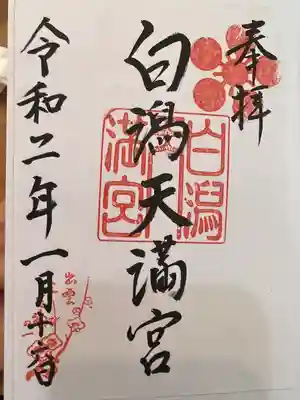 奉拝
白潟天満宮
白潟
満宮
令和二年一月十六日
出雲